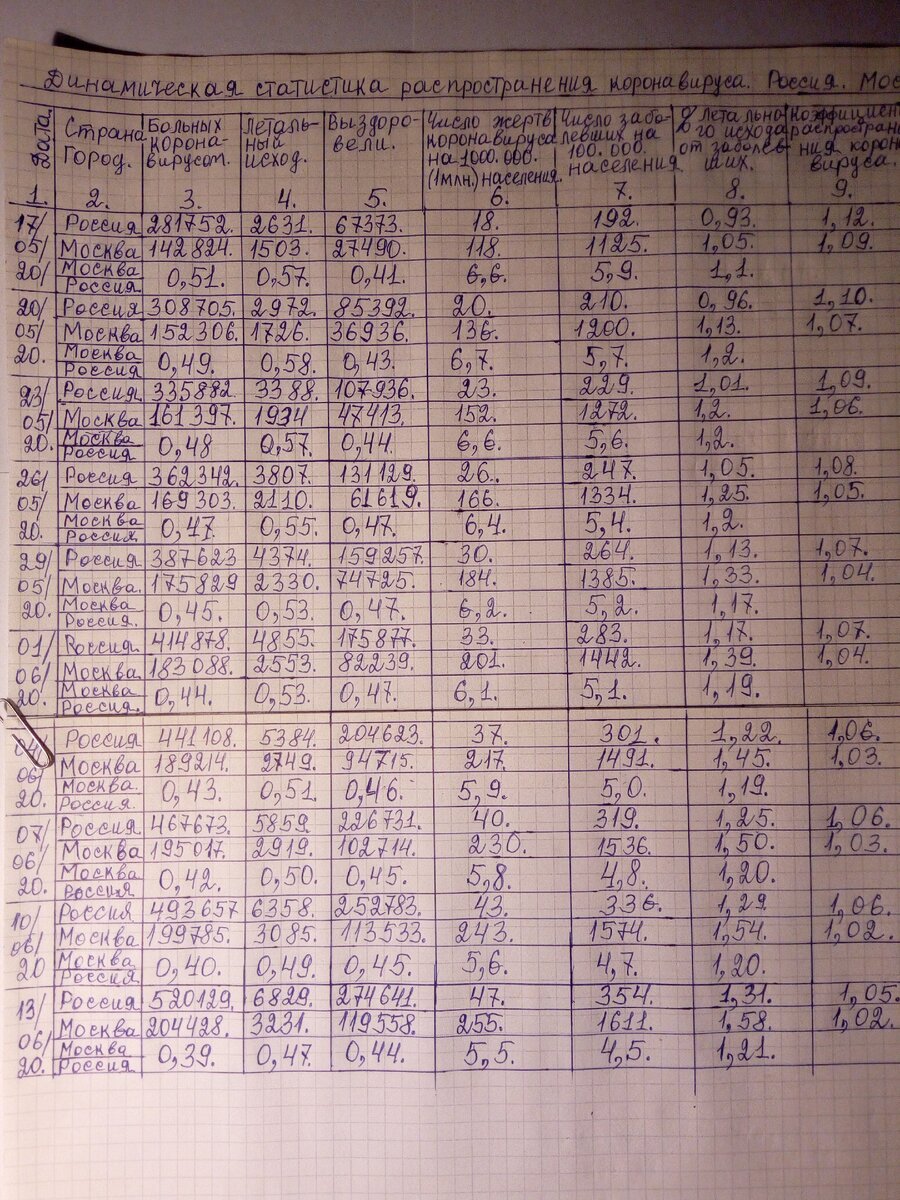 Динамическая статистика распространения коронавируса. Россия. Мос
Дата. Страна Город. Больных корона-вирусом. Леталь-ный исход. Выздоро-вели. Число жертв коронавируса на 1000.000. (1млн.) населения. Число забо-левших на 100.000. населения % летально-го исхода от заболев-ших. Коэффициен распростране ния корона вируса.
1. 2. 3. 4. 5. 6. 7. 8. 9.
17/ Россия 281752. 2631. 67373. 18. 192. 0,93. 1,12.
05/ Москва 142824. 1503. 27490. 118. 1125. 1,05. 1,09.
20/ Москва Россия 0,51. 0,57. 0,41. 6,6. 5,9. 1,1.
20/ Россия 308705. 2972. 85392. 20. 210. 0,96. 1,10.
05/ Москва 152306. 1726. 36936. 136. 1200. 1,13. 1,07.
20. Москва Россия 0,49. 0,58. 0,43. 6,7. 5,7. 1,2.
23/ Россия 335882. 3388. 107936. 23. 229. 1,01. 1,09.
05/ Москва 161397. 1934 47413. 152. 1272. 1,2. 1,06.
20. Москва Россия 0,48 0,57. 0,44. 6,6. 5,6. 1,2.
26/ Россия 362342. 3807. 131129. 26. 247. 1,05. 1,08.
05/ Москва 169303. 2110. 61619. 166. 1334. 1,25. 1,05.
20. Москва Россия 0,47. 0,55. 0,47. 6,4. 5,4. 1,2.
29/ Россия 387623 4374. 159257. 30. 264. 1,13. 1,07.
05/ Москва. 175829 2330. 74725. 184. 1385. 1,33. 1,04.
20. Москва Россия. 0,45. 0,53. 0,47. 6,2. 5,2. 1,17.
01/ Россия. 414878. 4855. 175877. 33. 283. 1,17. 1,07.
06/ Москва. 183088. 2553. 82239. 201. 1442. 1,39. 1,04.
20. Москва Россия. 0,44. 0,53. 0,47. 6,1. 5,1. 1,19.
04/ Россия 441108. 5384. 204623. 37. 301. 1,22. 1,06.
06/ Москва 189214. 2749. 94715. 217. 1491. 1,45. 1,03.
20. Москва. Россия. 0,43. 0,51. 0,46. 5,9. 5,0. 1,19.
07/ Россия. 467673. 5859. 226731. 40. 319. 1,25. 1,06.
06/ Москва 195017. 2919. 102714. 230. 1536. 1,50. 1,03.
20. Москва Россия 0,42. 0,50. 0,45. 5,8. 4,8. 1,20.
10/ Россия 493657 6358. 252783. 43. 336. 1,29. 1,06.
06/ Москва. 199785. 3085. 113533. 243. 1574. 1,54. 1,02.
20 Москва Россия 0,40. 0,49. 0,45. 5,6. 4,7. 1,20.
13/ Россия 520129. 6829. 274641. 47. 354. 1,31. 1,05.
06/ Москва 204428. 3231. 119558. 255. 1611. 1,58. 1,02.
20. Москва Россия. 0,39. 0,47. 0,44. 5,5. 4,5. 1,21.